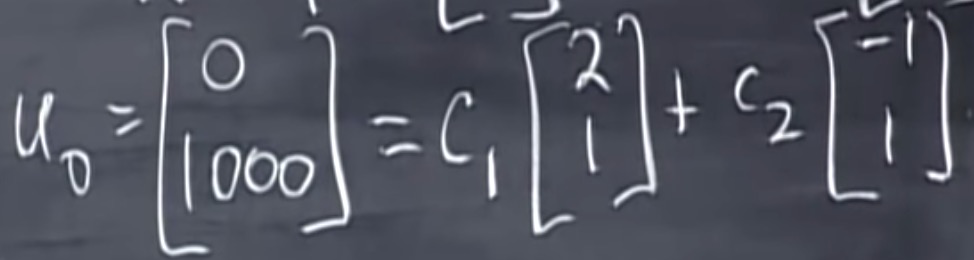 u₀ = [0 1000] = c₁ [2 1] + c₂ [-1 1]